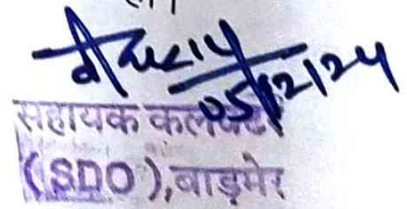 05/12/24
सहायक कलक्टर
(SDO),बाड़मेर